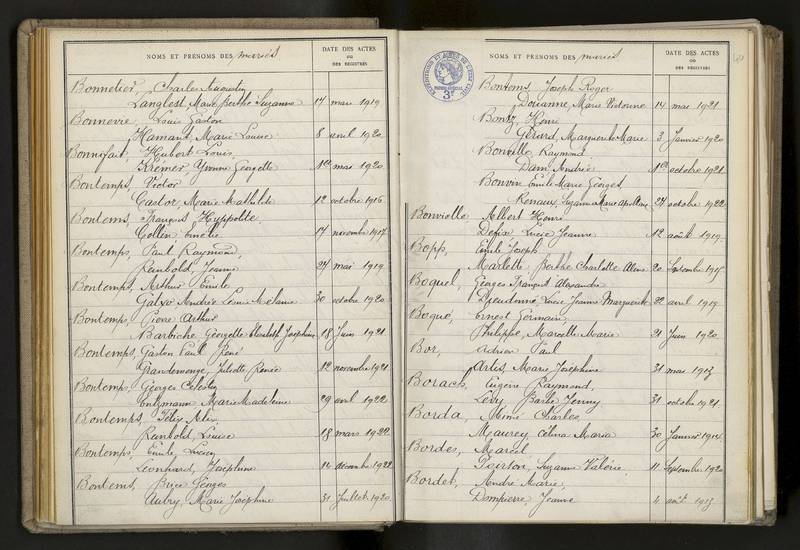 NOMS ET PRÉNOMS DES mariés
DATE DES ACTES
OU
DES REGISTRES
Bonnetier, Charles Augustin
Langlest, Marie Berthe Suzanne 14 mars 1919
Bonnevie, Louis Gaston
Hamant, Marie Louise 8 avril 1920
Bonnifait, Hubert Louis,
Krémer, Yvonne Georgette 1er mai 1920
Bontemps, Victor
Castor, Marie Mathilde 12 octobre 1916
Bontems, François Hyppolite
Collin Emélie 17 novembre 1917
Bontemps, Paul Raymond,
Reinbold, Jeanne 24 mai 1919
Bontemps, Arthur Emile
Andrée Louise Mélanie 30 octobre 1920
Bontemp, Pierre Arthur
Barbiche, Georgette Elisabeth Joséphine 18 Juin 1921
Bontemps, Gaston Paul René
Grandemenge, Juliette Renée 12 novembre 1921
Bontemps, Georges Célestin
Entzmann Marie Madeleine 29 avril 1922
Bontemps, Félix Alix
Ranbold, Louise 18 mars 1922
Bontemps, Emile, Lucien
Léonhard, Joséphine 14 décembre 1922
Bontems, Brice Georges
Aubry, Marie Joséphine 31 Juillet 1920
NOMS ET PRÉNOMS DES mariés
DATE DES ACTES
OU
DES REGISTRES
Bontems, Joseph Roger
Dorianne, Marie Victorine 14 mai 1921
Bonzy, Henri
Gérard, Marguerite Marie 3 Janvier 1920
Bonville, Raymond
Dam Andrée 1er octobre 1921
Bonvin Emile Marie Georges,
Renaux, Suzanne Marie 24 octobre 1922
Bonviolle Albert Henri
Lucie Jeanne 12 août 1919
Bopp, Emile Joseph
Marlette, Berthe Charlotte 20 Septembre 1915
Boquel, Georges François Alexandre
Dieudonné, Lucie Jeanne Marguerite 22 avril 1919
Boqué, Ernest Germain
Philippe, Marcelle Marie 21 Juin 1920
Bor, Adrien Paul
Artis, Marie Joséphine 31 mai 1913
Borach, Eugène Raymond,
Lévy Berthe Jenny 31 octobre 1921
Borda, Mimé Charles
Maurey Célina Maria 30 Janvier 1914
Bordes, Marcel
Poirson, Suzanne Valérie 11 Septembre 1920
Bordet, André Marie
Dompierre, Jeanne 4 août 1913